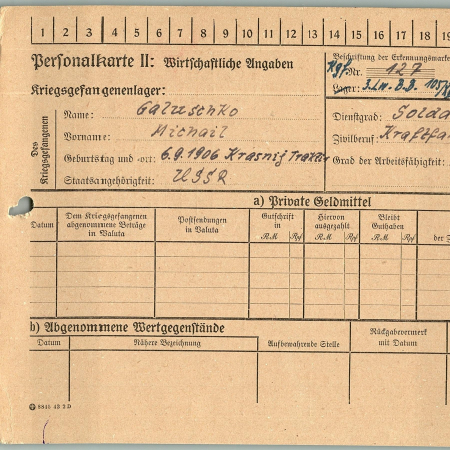 1 2 3 4 5 6 7 8 9 10 11 12 13 14 15 16 17 18 19
Personalkarte II: Wirtschaftliche Angaben
Beschriftung der Erkennungsmarke
Kgf. Nr. 127
Lager:
Kriegsgefangenenlager:
Des Kriegsgefangenen
Name: Galuschko
Vorname: Michail
Geburtstag und -ort: 6.9.1906 Krasnij Traktir
Staatsangehörigkeit: USSR
Dienstgrad: Solda
Zivilberuf: Kraftfa
Grad der Arbeitsfähigkeit:
a) Private Geldmittel
Datum
Dem Kriegsgefangenen abgenommene Beträge in Valuta
Postsendungen in Valuta
Gutschrift in RM Rpf
Hiervon ausgezahlt RM Rpf
Bleibt Guthaben RM Rpf
der
b) Abgenommene Wertgegenstände
Datum
Nähere Bezeichnung
Aufbewahrende Stelle
Rückgabevermerk mit Datum